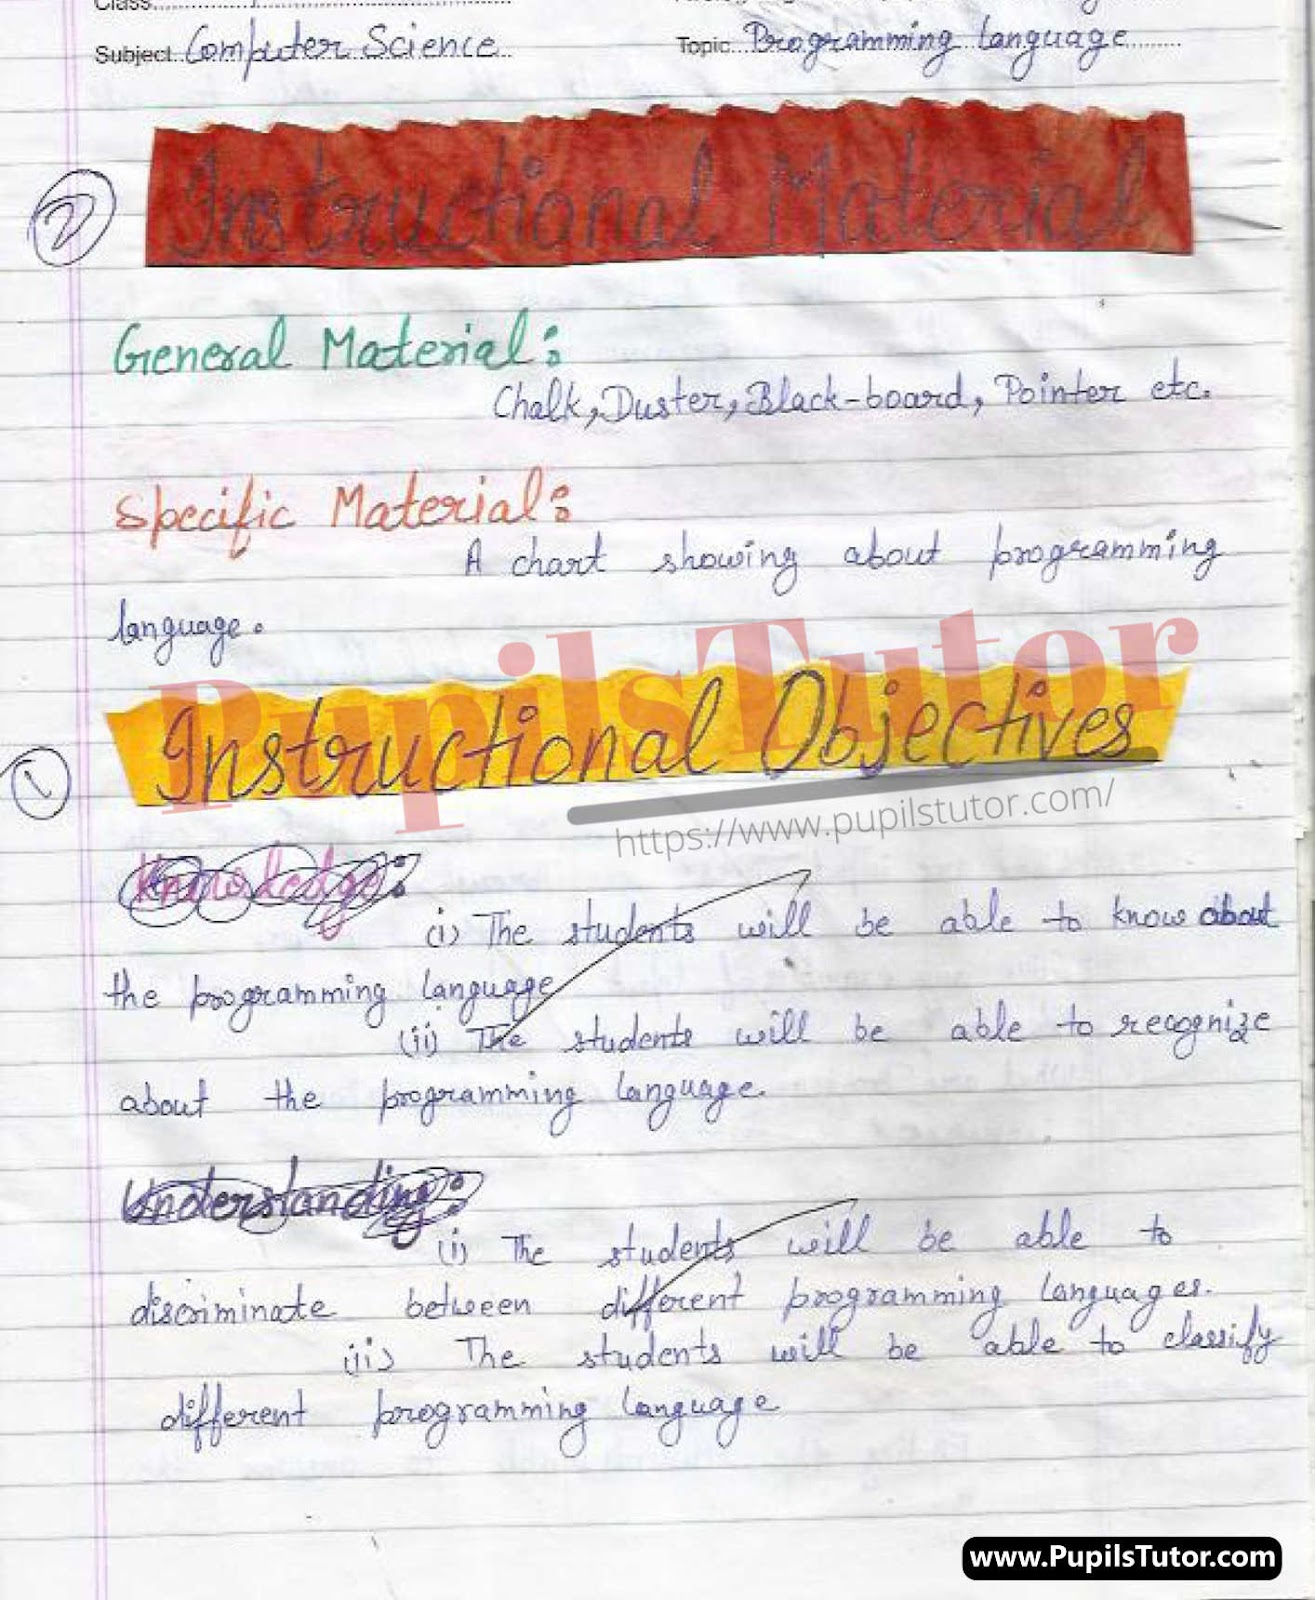 Class
Subject Computer Science
Topic Programming language
2
Instructional Material
General Material:
Chalk, Duster, Black-board, Pointer etc.
Specific Material:
A chart showing about programming
language.
PupilsTutor
1
Instructional Objectives
https://www.pupilstutor.com/
Knowledge:
(i) The students will be able to know about
the programming language
(ii) The students will be able to recognize
about the programming language.
Understanding:
(i) The students will be able to
discriminate between different programming languages.
(ii) The students will be able to classify
different programming language
www.PupilsTutor.com